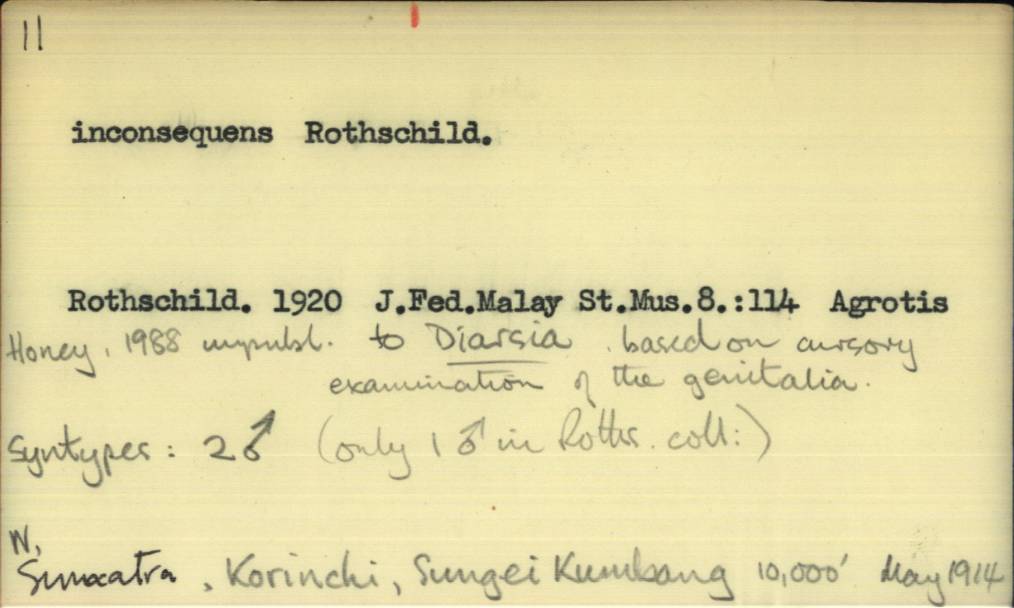 11
inconsequens Rothschild.
Rothschild. 1920 J.Fed.Malay St.Mus.8.:114 Agrotis
Honey, 1988 unpubl. to Diarsia based on cursory
examination of the genitalia.
Syntypes: 2♂ (only 1 ♂ in Roths. coll:)
W,
Sumatra, Korinchi, Sungei Kumbang 10,000' May 1914